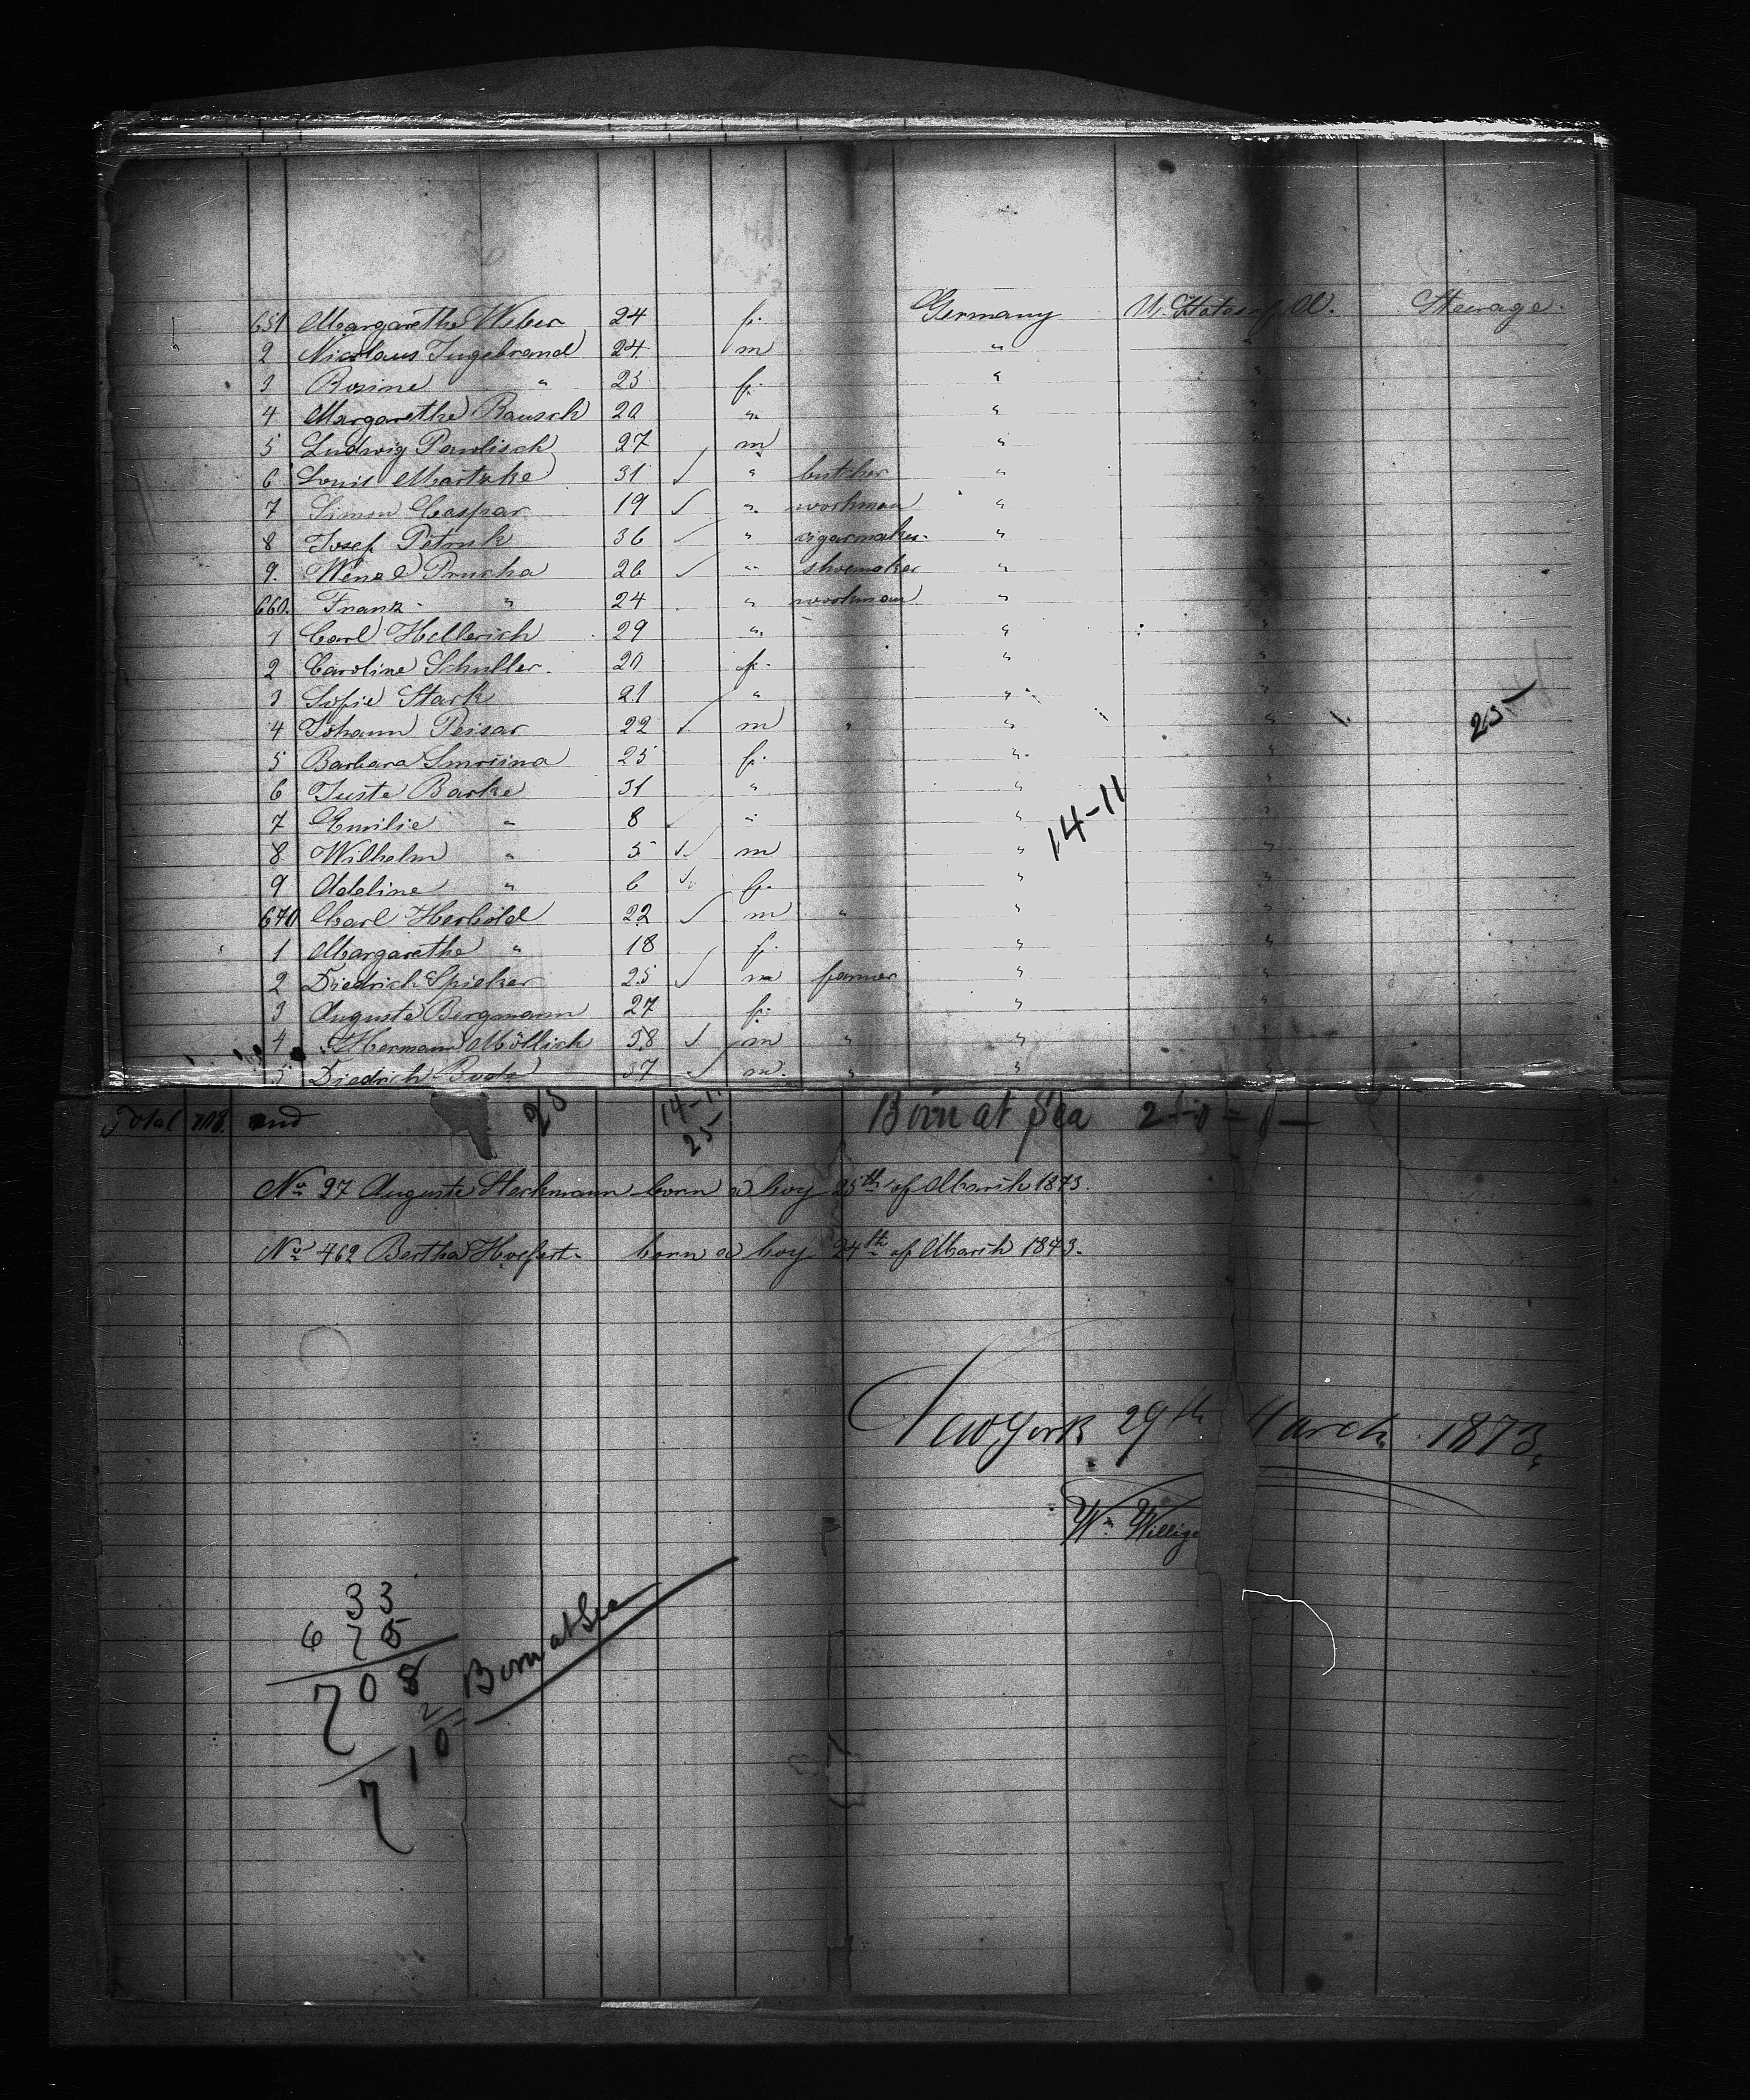 651 Margarethe Weber 24 f. Germany U. States of A. Steerage.
2 Nicolaus Ingebrand 24 m "
3 Rosine " 23 f. " "
4 Margarethe Rausch 20 " " "
5 Ludwig Pawlisch 27 m " "
6 Louis Martzke 31 ✓ " butcher " "
7 Simon Caspar 19 ✓ " workman " "
8 Josef Petruk 36 ✓ " cigarmaker. " "
9. Wenzel Prucha 26 ✓ " shoemaker " "
660. Franz " 24 " workman " "
1 Carl Hellerich 29 " " "
2 Caroline Schuller. 20 f. " "
3 Sofie Stark 21 " " "
4 Johann Peisar 22 ✓ m " " " 25
5 Barbara 25 f. " "
6 Juste Barke 31 " " "
7 Emilie " 8 " " " 14-11
8 Wilhelm " 5 ✓ m " "
9 Adeline " 6 f. " "
670 Carl Herbold 22 ✓ m " " "
1 Margarethe " 18 f. " "
2 Diedrich Spieker 25 ✓ m farmer " "
3 Auguste Bergmann 27 f. " "
4 Hermann Möllich 38 ✓ m " " "
5 Diedrich 37 ✓ m. " " "
Total 708. and 25 14-11 25 Born at Sea
No 27 Auguste Steckmann born a boy 25th of March 1873.
No 462 Bertha Hoefert. born a boy 24th of March 1873.
New York 29th March 1873,
Wm Willige
33
675
708
2
710 = Born at Sea